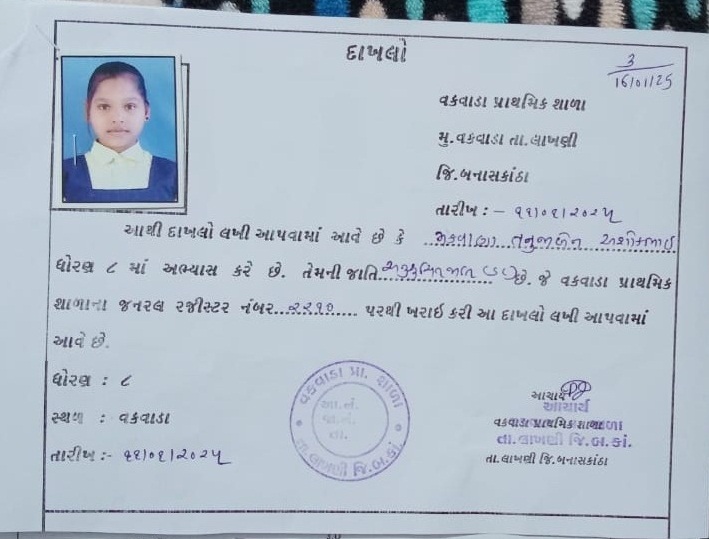 દાખલો
3
16/01/25
વકવાડા પ્રાથમિક શાળા
મુ.વકવાડા તા.લાખણી
જિ.બનાસકાંઠા
તારીખ :- ૧૬/૦૧/૨૦૨૫
આથી દાખલો લખી આપવામાં આવે છે કે તનુજાબેન અશોકભાઇ
ધોરણ ૮ માં અભ્યાસ કરે છે. તેમની જાતિ છે. જે વકવાડા પ્રાથમિક
શાળાના જનરલ રજીસ્ટર નંબર પરથી ખરાઇ કરી આ દાખલો લખી આપવામાં
આવે છે.
ધોરણ : ૮
સ્થળ : વકવાડા
તારીખ :- ૧૬/૦૧/૨૦૨૫
વકવાડા પ્રા. શાળા
તા.લાખણી જિ.બ.કાં.
આચાર્ય
આચાર્ય
વકવાડા પ્રાથમિક શાળા
તા.લાખણી જિ.બ.કાં.
તા.લાખણી જિ.બનાસકાંઠા